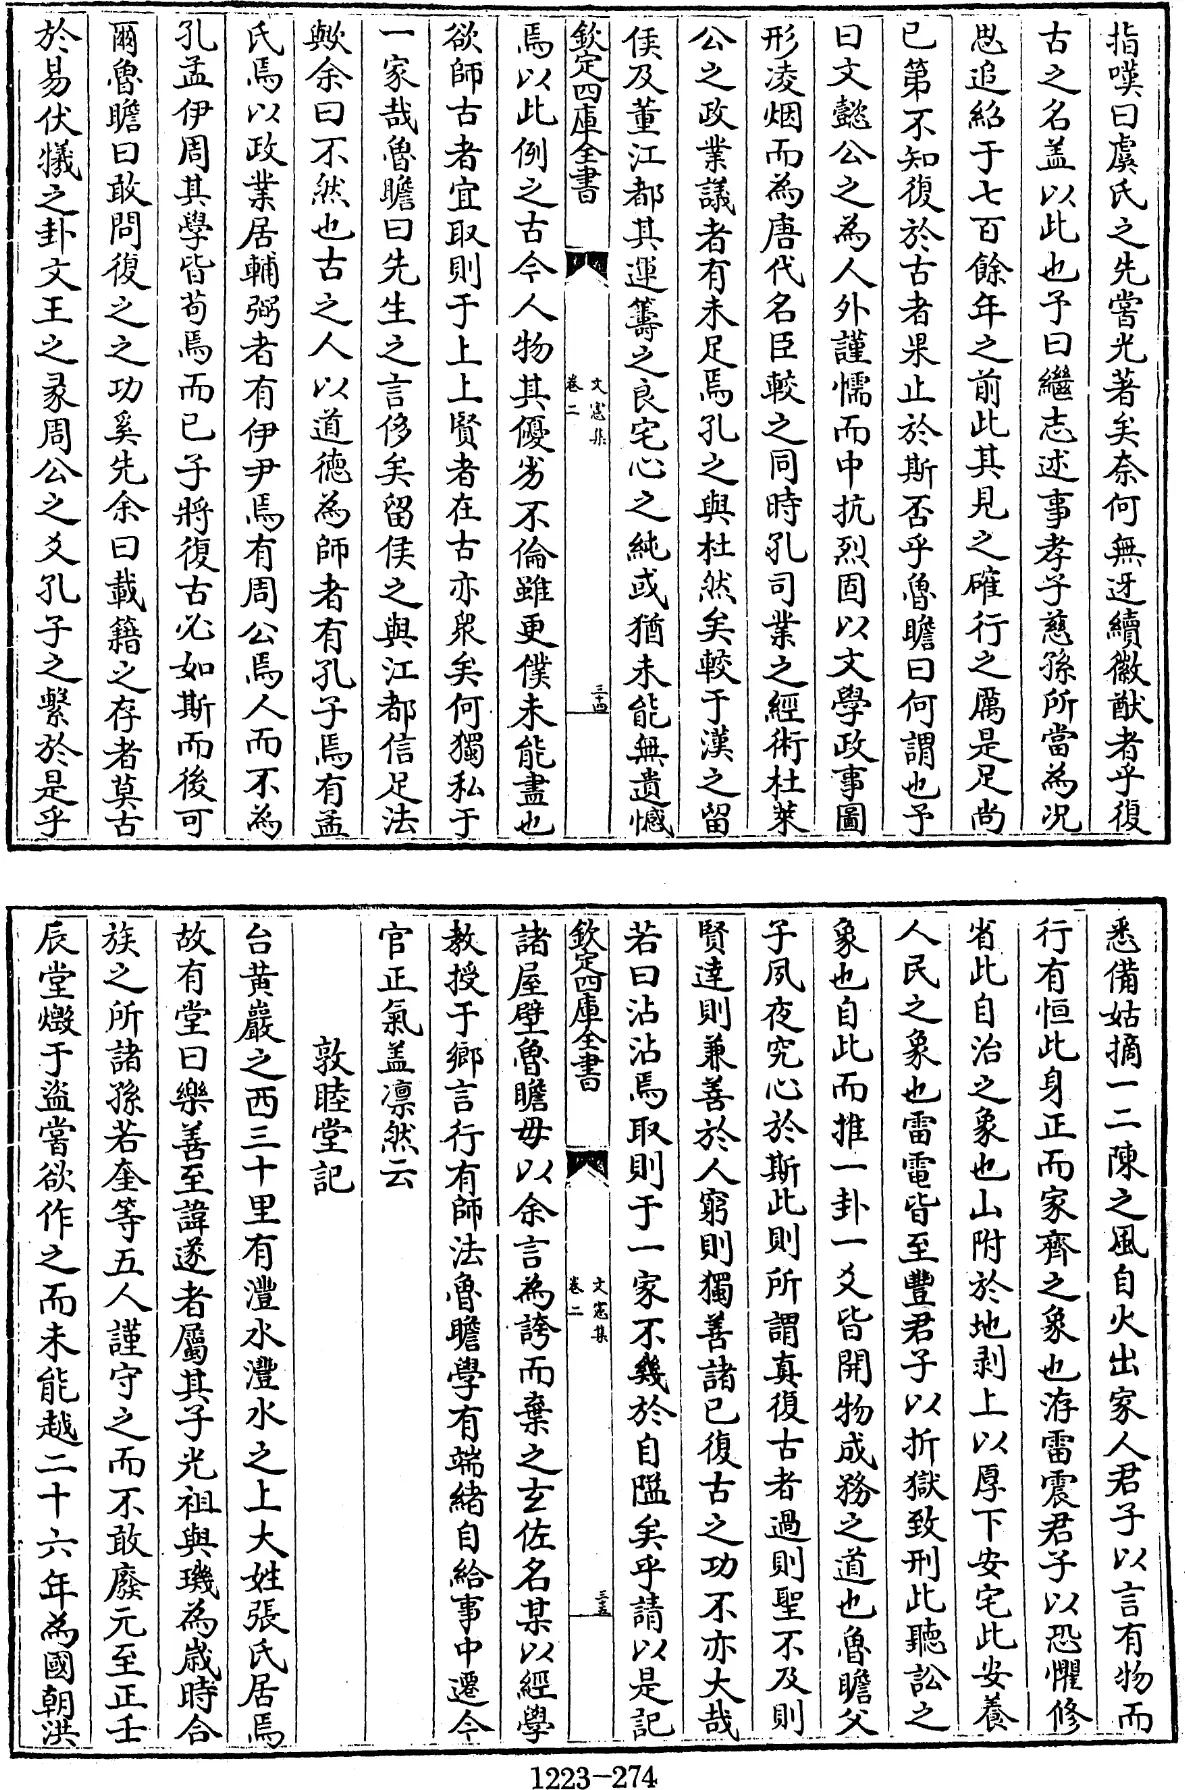 指嘆曰虞氏之先嘗光著矣奈何無迓續徽猷者乎復
古之名盖以此也予曰繼志述事孝子慈孫所當為况
思追紹于七百餘年之前此其見之確行之厲是足尚
已第不知復於古者果止於斯否乎魯瞻曰何謂也予
曰文懿公之為人外謹懦而中抗烈固以文學政事圖
形凌烟而為唐代名臣較之同時孔司業之經術杜萊
公之政業議者有未足焉孔之與杜然矣較于漢之留
侯及董江都其運籌之良宅心之純或猶未能無遺憾
欽定四庫全書
文憲集
卷二
三十四
焉以此例之古今人物其優劣不倫雖更僕未能盡也
欲師古者宜取則于上上賢者在古亦衆矣何獨私于
一家哉魯瞻曰先生之言侈矣留侯之與江都信足法
歟余曰不然也古之人以道德為師者有孔子焉有孟
氏焉以政業居輔弼者有伊尹焉有周公焉人而不為
孔孟伊周其學皆苟焉而已子將復古必如斯而後可
爾魯瞻曰敢問復之之功奚先余曰載籍之存者莫古
於易伏犧之卦文王之彖周公之爻孔子之繫於是乎
悉備姑摘一二陳之風自火出家人君子以言有物而
行有恒此身正而家齊之象也洊雷震君子以恐懼修
省此自治之象也山附於地剥上以厚下安宅此安養
人民之象也雷電皆至豐君子以折獄致刑此聽訟之
象也自此而推一卦一爻皆開物成務之道也魯瞻父
子夙夜究心於斯此則所謂真復古者過則聖不及則
賢達則兼善於人窮則獨善諸已復古之功不亦大哉
若曰沾沾焉取則于一家不幾於自隘矣乎請以是記
欽定四庫全書
文憲集
卷二
三十五
諸屋壁魯瞻毋以余言為誇而棄之玄佐名某以經學
教授于鄉言行有師法魯瞻學有端緒自給事中遷今
官正氣盖凛然云
敦睦堂記
台黄巖之西三十里有灃水灃水之上大姓張氏居焉
故有堂曰樂善至諱遂者屬其子光祖與璣為歲時合
族之所諸孫若奎等五人謹守之而不敢廢元至正壬
辰堂燬于盜嘗欲作之而未能越二十六年為國朝洪
1223-274